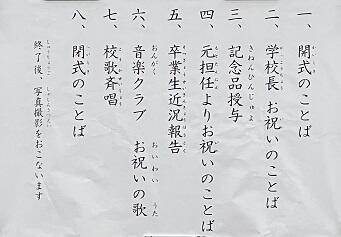 一、開式のことば
二、学校長 お祝いのことば
三、記念品授与
四、元担任よりお祝いのことば
五、卒業生近況報告
六、音楽クラブ お祝いの歌
七、校歌斉唱
八、閉式のことば
終了後、写真撮影をおこないます